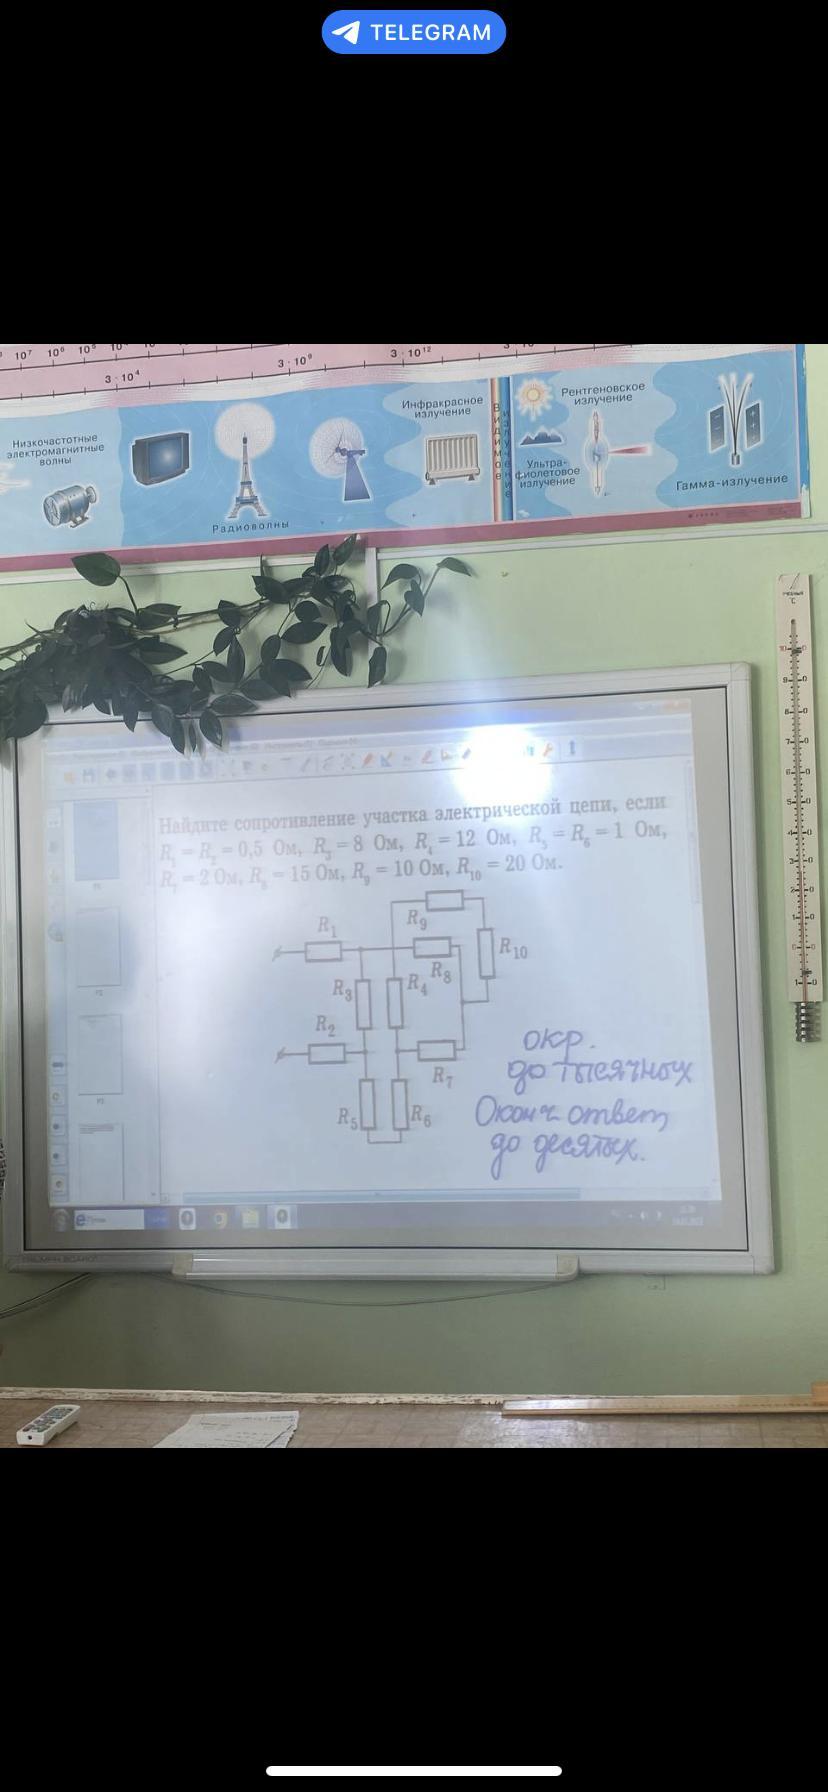 TELEGRAM
10⁷ 10⁶ 10⁵
3·10⁴
3·10⁹
3·10¹²
Низкочастотные
электромагнитные
волны
Радиоволны
Инфракрасное
излучение
Ультра-
фиолетовое
излучение
Рентгеновское
излучение
Гамма-излучение
°C
Найдите сопротивление участка электрической цепи, если
R₁ = R₂ = 0,5 Ом, R₃ = 8 Ом, R₄ = 12 Ом, R₅ = R₆ = 1 Ом,
R₇ = 2 Ом, R₈ = 15 Ом, R₉ = 10 Ом, R₁₀ = 20 Ом.
R₁
R₉
R₁₀
R₈
R₃
R₄
R₂
R₇
R₅
R₆
окр.
до тысячных
Оконч ответ
до десятых.